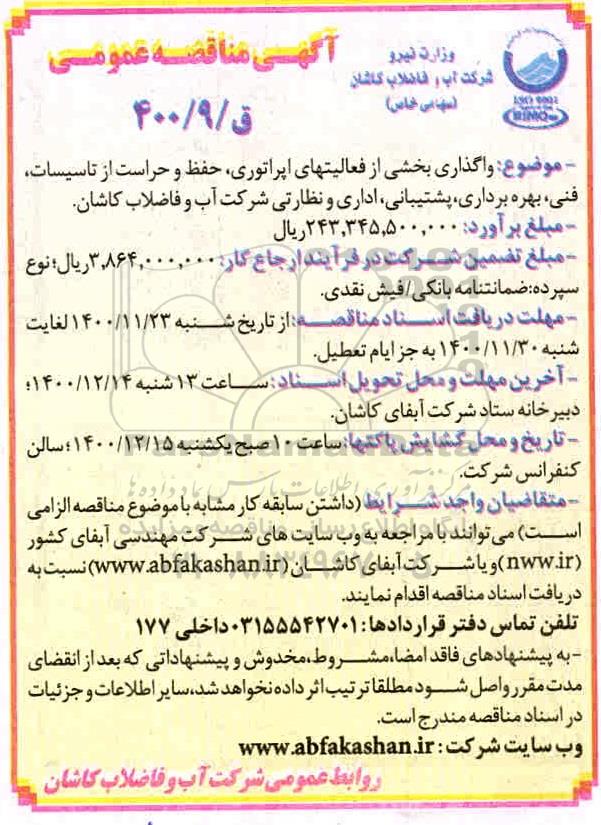 آگهی مناقصه عمومی
وزارت نیرو
شرکت آب و فاضلاب کاشان
(سهامی خاص)
ق/۴۰۰/۹
- موضوع: واگذاری بخشی از فعالیتهای اپراتوری، حفظ و حراست از تاسیسات،
فنی، بهره برداری، پشتیبانی، اداری و نظارتی شرکت آب و فاضلاب کاشان.
- مبلغ برآورد: ۲۴۳,۳۴۵,۵۰۰,۰۰۰ریال
- مبلغ تضمین شرکت در فرآیند ارجاع کار: ۳,۸۶۴,۰۰۰,۰۰۰ریال؛ نوع
سپرده:ضمانتنامه بانکی/فیش نقدی.
- مهلت دریافت اسناد مناقصه: از تاریخ شنبه ۱۴۰۰/۱۱/۲۳ لغایت
شنبه ۱۴۰۰/۱۱/۳۰ به جز ایام تعطیل.
- آخرین مهلت و محل تحویل اسناد: ساعت ۱۳ شنبه ۱۴۰۰/۱۲/۱۴؛
دبیرخانه ستاد شرکت آبفای کاشان.
- تاریخ و محل گشایش پاکتها: ساعت ۱۰ صبح یکشنبه ۱۴۰۰/۱۲/۱۵؛ سالن
کنفرانس شرکت.
- متقاضیان واجد شرایط (داشتن سابقه کار مشابه با موضوع مناقصه الزامی
است) می توانند با مراجعه به وب سایت های شرکت مهندسی آبفای کشور
(nww.ir) و یا شرکت آبفای کاشان (www.abfakashan.ir) نسبت به
دریافت اسناد مناقصه اقدام نمایند.
تلفن تماس دفتر قراردادها: ۰۳۱۵۵۵۴۲۷۰۱ داخلی ۱۷۷
- به پیشنهادهای فاقد امضا، مشروط، مخدوش و پیشنهاداتی که بعد از انقضای
مدت مقرر واصل شود مطلقا ترتیب اثر داده نخواهد شد، سایر اطلاعات و جزئیات
در اسناد مناقصه مندرج است.
وب سایت شرکت: www.abfakashan.ir
روابط عمومی شرکت آب و فاضلاب کاشان